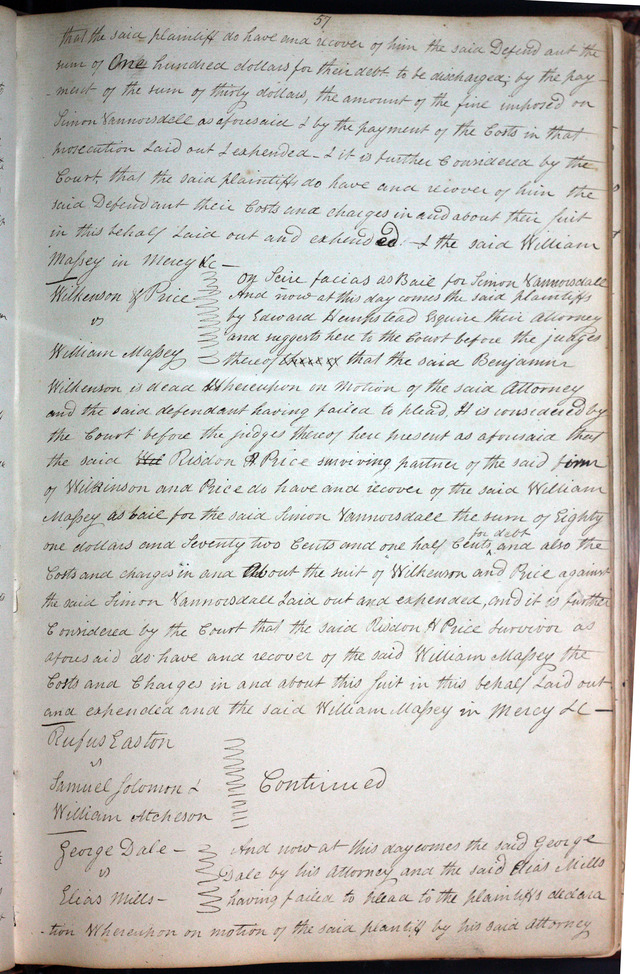 57
that the said plaintiff do have and recover of him the said Defendant the
sum of One hundred dollars for their debt to be discharged; by the pay-
-ment of the sum of thirty dollars, the amount of the fine imposed on
Simon Vannorsdell as aforesaid & by the payment of the Costs in that
prosecution Laid out & expended - & it is further Considered by the
Court, that the said plaintiffs do have and recover of him the
said Defendant their Costs and charges in and about their suit
in this behalf Laid out and expended - & the said William
Massey in Mercy &c -
Wilkenson & Price
vs
William Massey
On Scire facias as Bail for Simon Vannorsdall
And now at this day comes the said plaintiffs
by Edward Hempstead Esquire their Attorney
and suggests here to the Court before the judges
thereof that the said Benjamin
Wilkenson is dead Whereupon on Motion of the said Attorney
and the said defendant having failed to plead, It is considered by
the Court before the judges thereof here present as aforesaid that
the said Risdon H Price surviving partner of the said firm
of Wilkinson and Price do have and recover of the said William
Massey as bail for the said Simon Vannorsdall the sum of Eighty
one dollars and Seventy two Cents and one half Cents for debt, and also the
Costs and charges in and About the suit of Wilkenson and Price against
the said Simon Vannorsdall Laid out and expended, and it is further
Considered by the Court that the said Risdon H Price Survivor as
aforesaid do have and recover of the said William Massey the
Costs and Charges in and about this suit in this behalf Laid out
and expended and the said William Massey in Mercy &c -
Rufus Easton
vs
Samuel Solomon &
William Atcheson
Continued
George Dale -
vs
Elias Mills -
And now at this day comes the said George
Dale by his Attorney and the said Elias Mills
having failed to plead to the plaintiffs declara
-tion Whereupon on motion of the said plantiff by his said Attorney